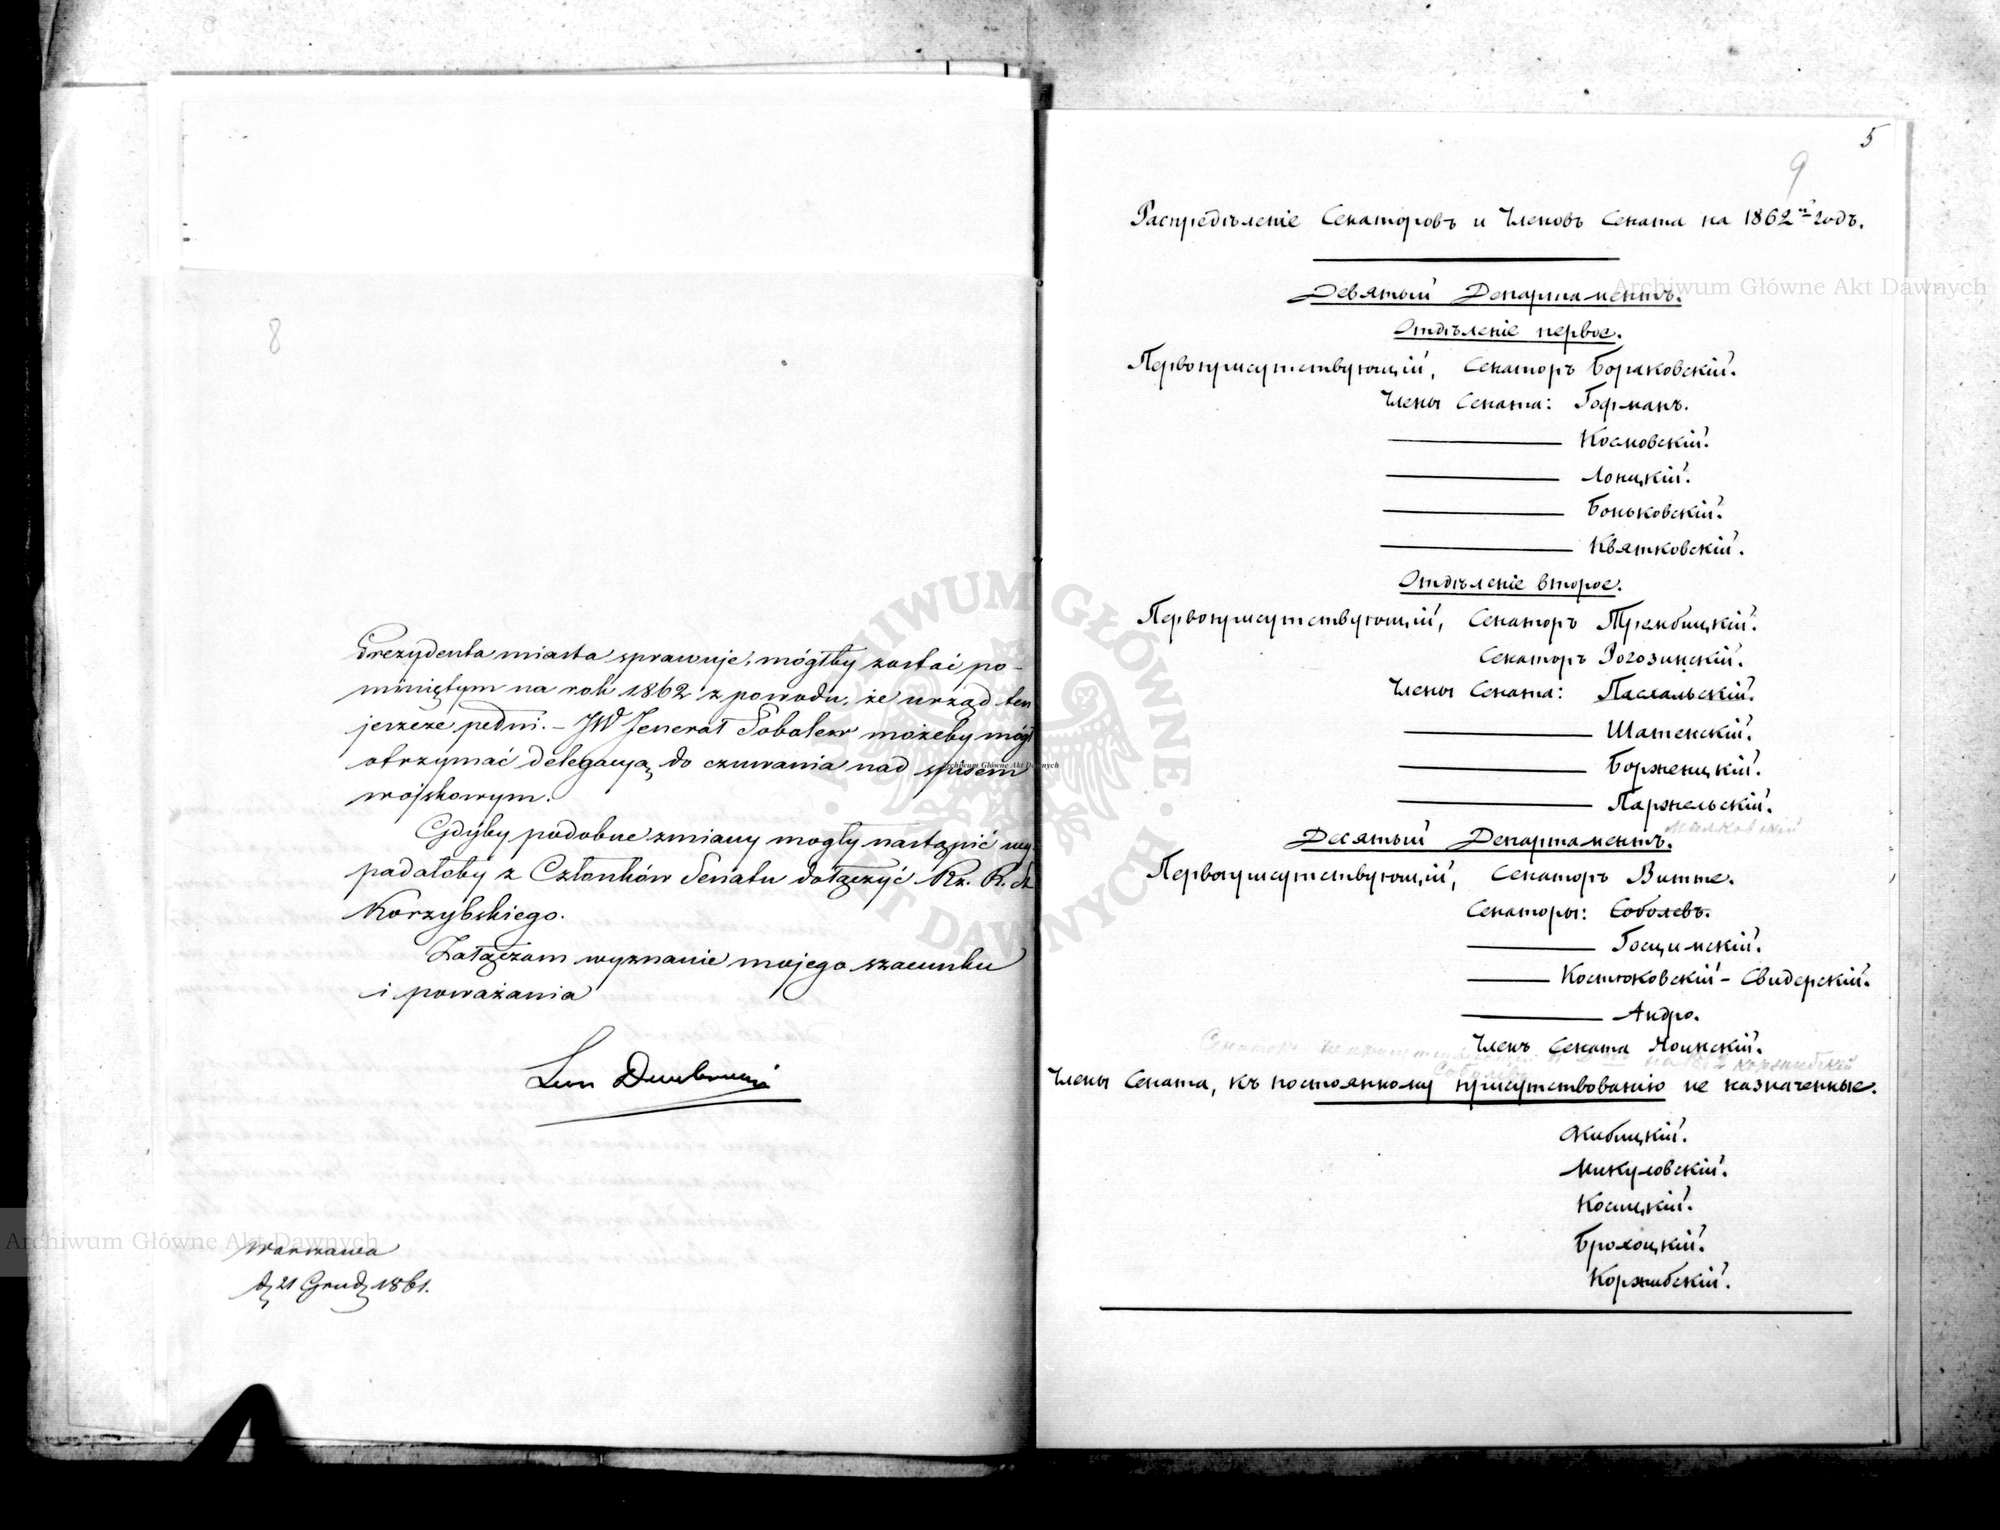 8
Prezydenta miasta sprawuje, mógłby zostać po-
miniętym na rok 1862 z powodu, że urząd ten
jeszcze pełni. – JW Jenerał Sobolew możeby mógł
otrzymać delegacyą do czuwania nad spisem
wojskowym.
Gdyby podobne zmiany mogły nastąpić wy-
padałoby z Członków Senatu dołączyć Rz. R. St.
Korzybskiego.
Załączam wyznanie mojego szacunku
i poważania
Warszawa
d. 21 Grud. 1861.
5
9
Распредѣленіе Сенаторовъ и Членовъ Сената на 1862й годъ.
Девятый Департаментъ.
Отдѣленіе первое.
Первоприсутствующій, Сенаторъ Бораковскій.
Члены Сената: Гофманъ.
Косновскій.
Лонцкій.
Боньковскій.
Квятковскій.
Отдѣленіе второе.
Первоприсутствующій, Сенаторъ Трембицкій.
Сенаторъ Рогозинскій.
Члены Сената: Пасхальскій.
Шатенскій.
Борженцкій.
Паржельскій.
Десятый Департаментъ.
Первоприсутствующій, Сенаторъ Витте.
Сенаторы: Соболевъ.
Госцимскій.
Костюковскій-Свидерскій.
Андро.
Членъ Сената Моинскій.
Коржибскій
Соболевъ
Члены Сената, къ постоянному присутствованію не назначенные.
Жибицкій.
Микуловскій.
Косицкій.
Брохоцкій.
Коржибскій.
Archiwum Główne Akt Dawnych
Archiwum Główne Akt Dawnych
Archiwum Główne Akt Dawnych
ARCHIWUM GŁÓWNE AKT DAWNYCH